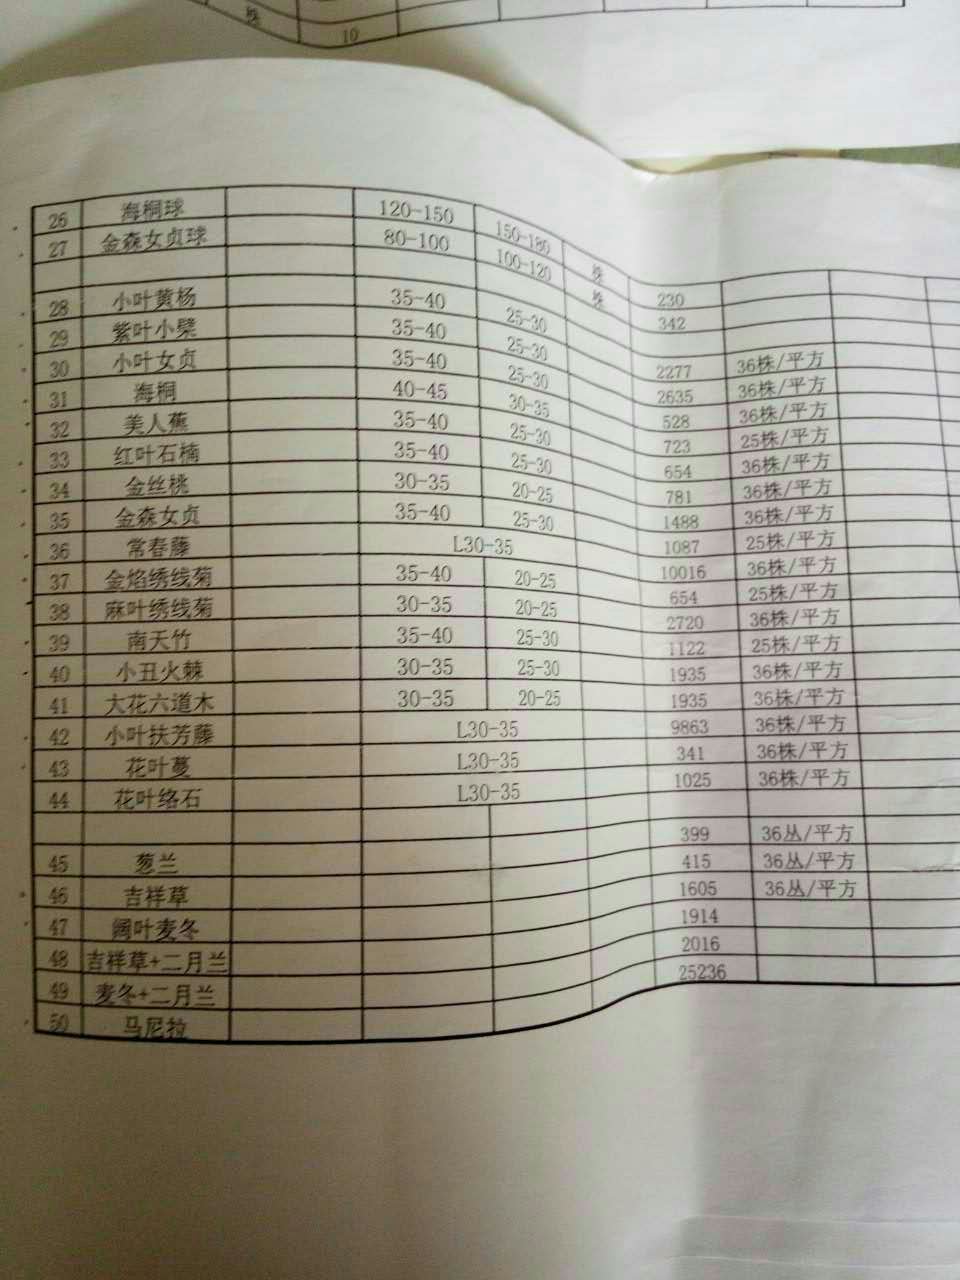 株 10
26 海桐球 120-150 150-180 株 230
27 金森女贞球 80-100 100-120 株 342
28 小叶黄杨 35-40 25-30 2277 36株/平方
29 紫叶小檗 35-40 25-30 2635 36株/平方
30 小叶女贞 35-40 25-30 528 36株/平方
31 海桐 40-45 30-35 723 25株/平方
32 美人蕉 35-40 25-30 654 36株/平方
33 红叶石楠 35-40 25-30 781 36株/平方
34 金丝桃 30-35 20-25 1488 36株/平方
35 金森女贞 35-40 25-30 1087 25株/平方
36 常春藤 L30-35 10016 36株/平方
37 金焰绣线菊 35-40 20-25 654 25株/平方
38 麻叶绣线菊 30-35 20-25 2720 36株/平方
39 南天竹 35-40 25-30 1122 25株/平方
40 小丑火棘 30-35 25-30 1935 36株/平方
41 大花六道木 30-35 20-25 1935 36株/平方
42 小叶扶芳藤 L30-35 9863 36株/平方
43 花叶蔓 L30-35 341 36株/平方
44 花叶络石 L30-35 1025 36株/平方
45 葱兰 399 36丛/平方
46 吉祥草 415 36丛/平方
47 阔叶麦冬 1605 36丛/平方
48 吉祥草+二月兰 1914
49 麦冬+二月兰 2016
50 马尼拉 25236